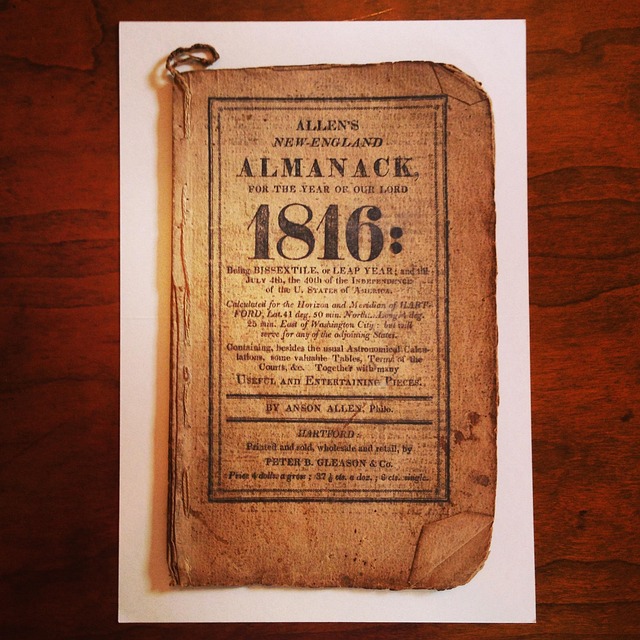 ALLEN'S
NEW-ENGLAND
ALMANACK,
FOR THE YEAR OF OUR LORD
1816:
Being BISSEXTILE, or LEAP YEAR; and till
JULY 4th, the 40th of the INDEPENDENCE
of the U. STATES of AMERICA.
Calculated for the Horizon and Meridian of HART-
FORD, Lat. 41 deg. 50 min. North... Long. 4 deg.
25 min. East of Washington City: but will
serve for any of the adjoining States.
Containing, besides the usual Astronomical Calcu-
lations, some valuable Tables, Terms of the
Courts, &c. Together with many
USEFUL AND ENTERTAINING PIECES.
BY ANSON ALLEN, Philo.
HARTFORD:
Printed and sold, wholesale and retail, by
PETER B. GLEASON & Co.
Price 4 dolls. a gross; 37 ½ cts. a doz.; 6 cts. single.